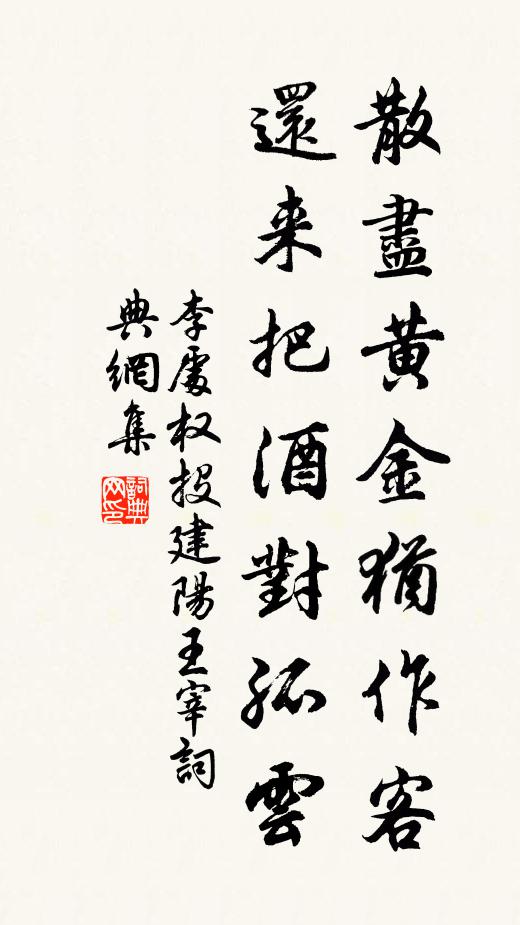 散盡黃金猶作客
還来把酒對孤雲
李處权投建陽王宰詞
典網集
詞典網印